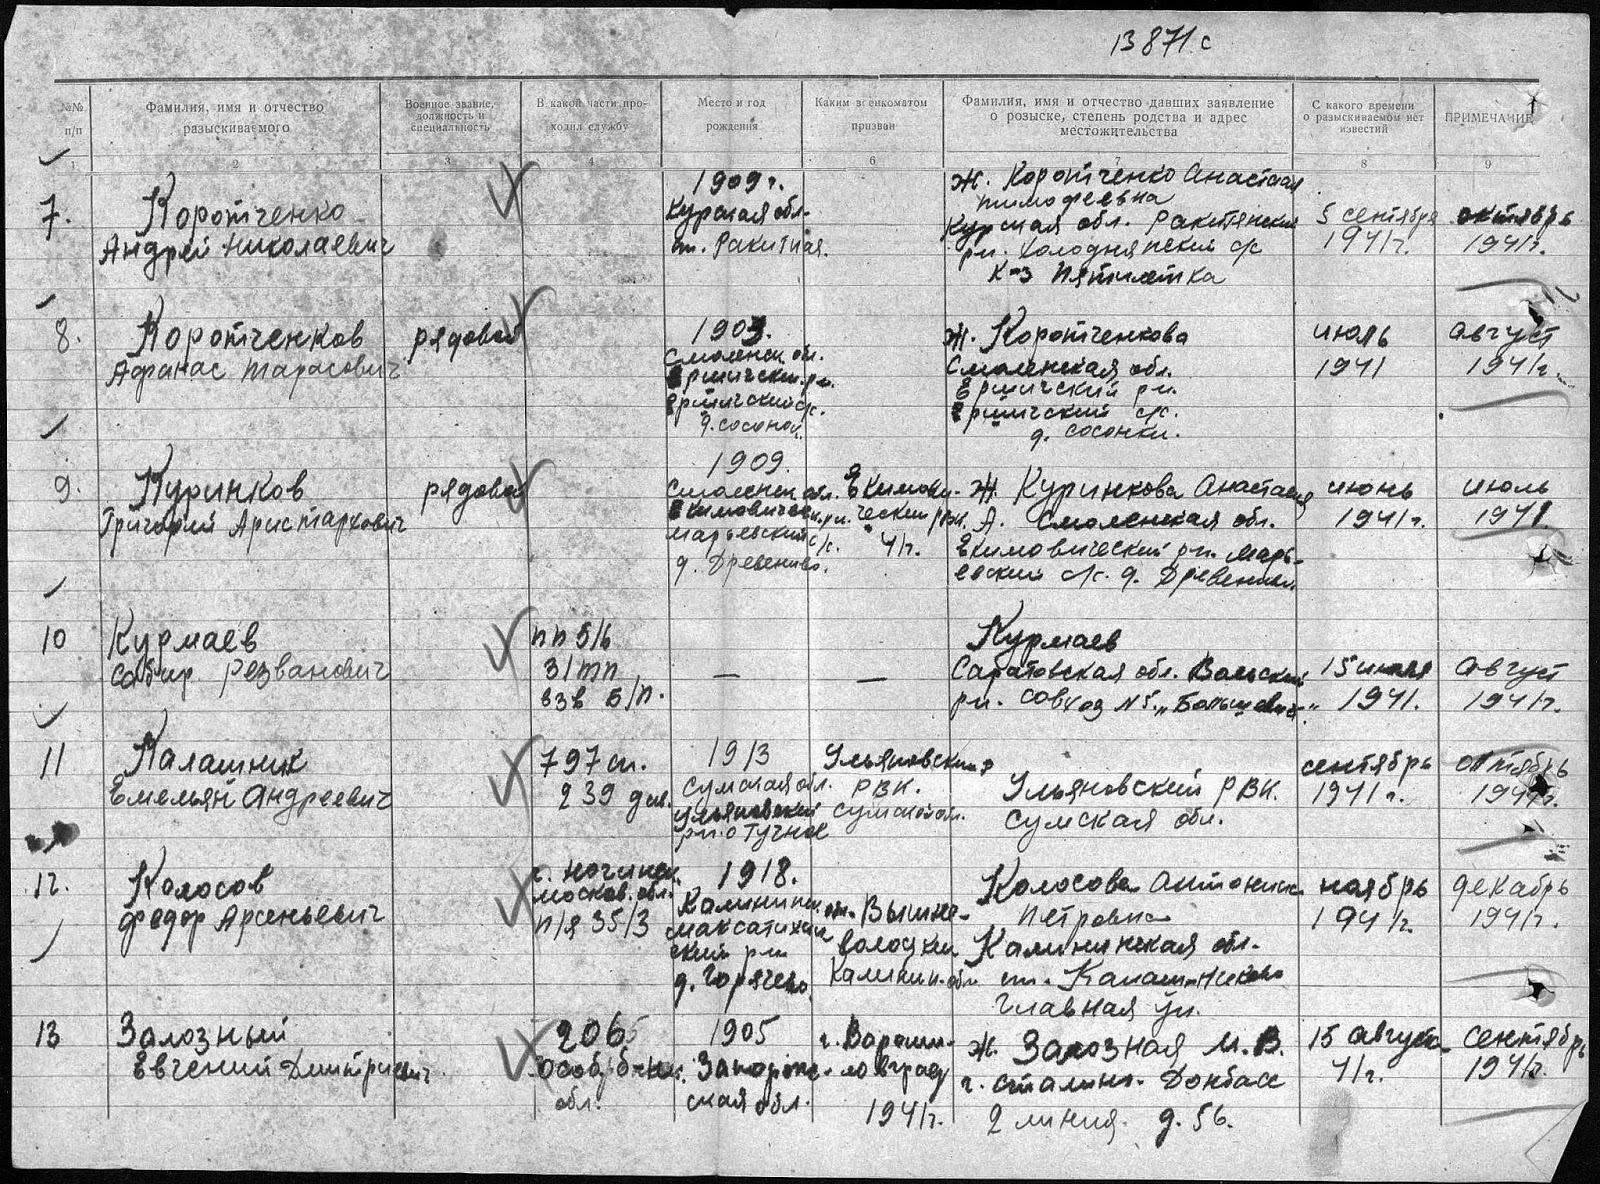 13871с
№№ п/п
Фамилия, имя и отчество разыскиваемого
Военное звание, должность и специальность
В какой части проходил службу
Место и год рождения
Каким военкоматом призван
Фамилия, имя и отчество давших заявление о розыске, степень родства и адрес местожительства
С какого времени о разыскиваемом нет известий
ПРИМЕЧАНИЕ
1 2 3 4 6 7 8 9
7.
Коротченко
Андрей Николаевич
1909 г.
Курская обл.
ст. Ракитная.
Ж. Коротченко Анастасия
Тимофеевна
Курская обл. Ракитянский
рн. Холоднянский с/с
к-з Пятилетка
5 сентября
1941г.
октябрь
1941г.
8.
Коротченков
Афанас Тарасович
рядовой
1903.
Смоленск. обл.
Ершическ. рн.
Ершичский с/с.
д. Сосонки.
Ж. Коротченкова
Смоленская обл.
Ершичский рн.
Ершичский с/с.
д. Сосонки.
июль
1941
август
1941г.
9.
Куринков
Григорий Аристархович
рядовой
1909.
Смоленск обл.
Екимовическ. рн.
Марьевский с/с.
д. Древениво.
Екимови-
ческий РВК.
41г.
Ж. Куринкова Анастасия
А. Смоленская обл.
Екимовический рн. Марь-
евский с/с. д. Древеники.
июнь
1941г.
июль
1941
10
Курмаев
Сабир Резванович
пп 516
31тп
взв Б/П.
—
—
Курмаев
Саратовская обл. Вольский
рн. совхоз №5 „Большевик"
15 июля
1941.
август
1941г.
11
Калашник
Емельян Андреевич
797 сп.
239 див.
1913
Сумская обл.
Ульяновский
рн. с Тучное
Ульяновский
РВК.
Сумской обл.
Ульяновский РВК.
Сумская обл.
сентябрь
1941г.
октябрь
1941г.
12.
Колосов
Федор Арсеньевич
г. Ногинск
москов. обл.
п/я 35/3
1918.
Калининск.
Максатихин
ский рн
д. Горячево.
ст. Вышне-
волоцкий
Калинин. обл
Колосова Антонина
Петровна
Калининская обл.
ст. Калашниково
Главная ул.
ноябрь
1941г.
декабрь
1941г.
13
Залозный
Евгений Дмитриевич
2065
обл.
1905
Запорож-
ская обл.
г. Вороши-
ловград
1941г.
Ж. Залозная М.В.
г. Сталино. Донбасс
2 линия д. 56.
15 август
41г.
сентябрь
1941г.